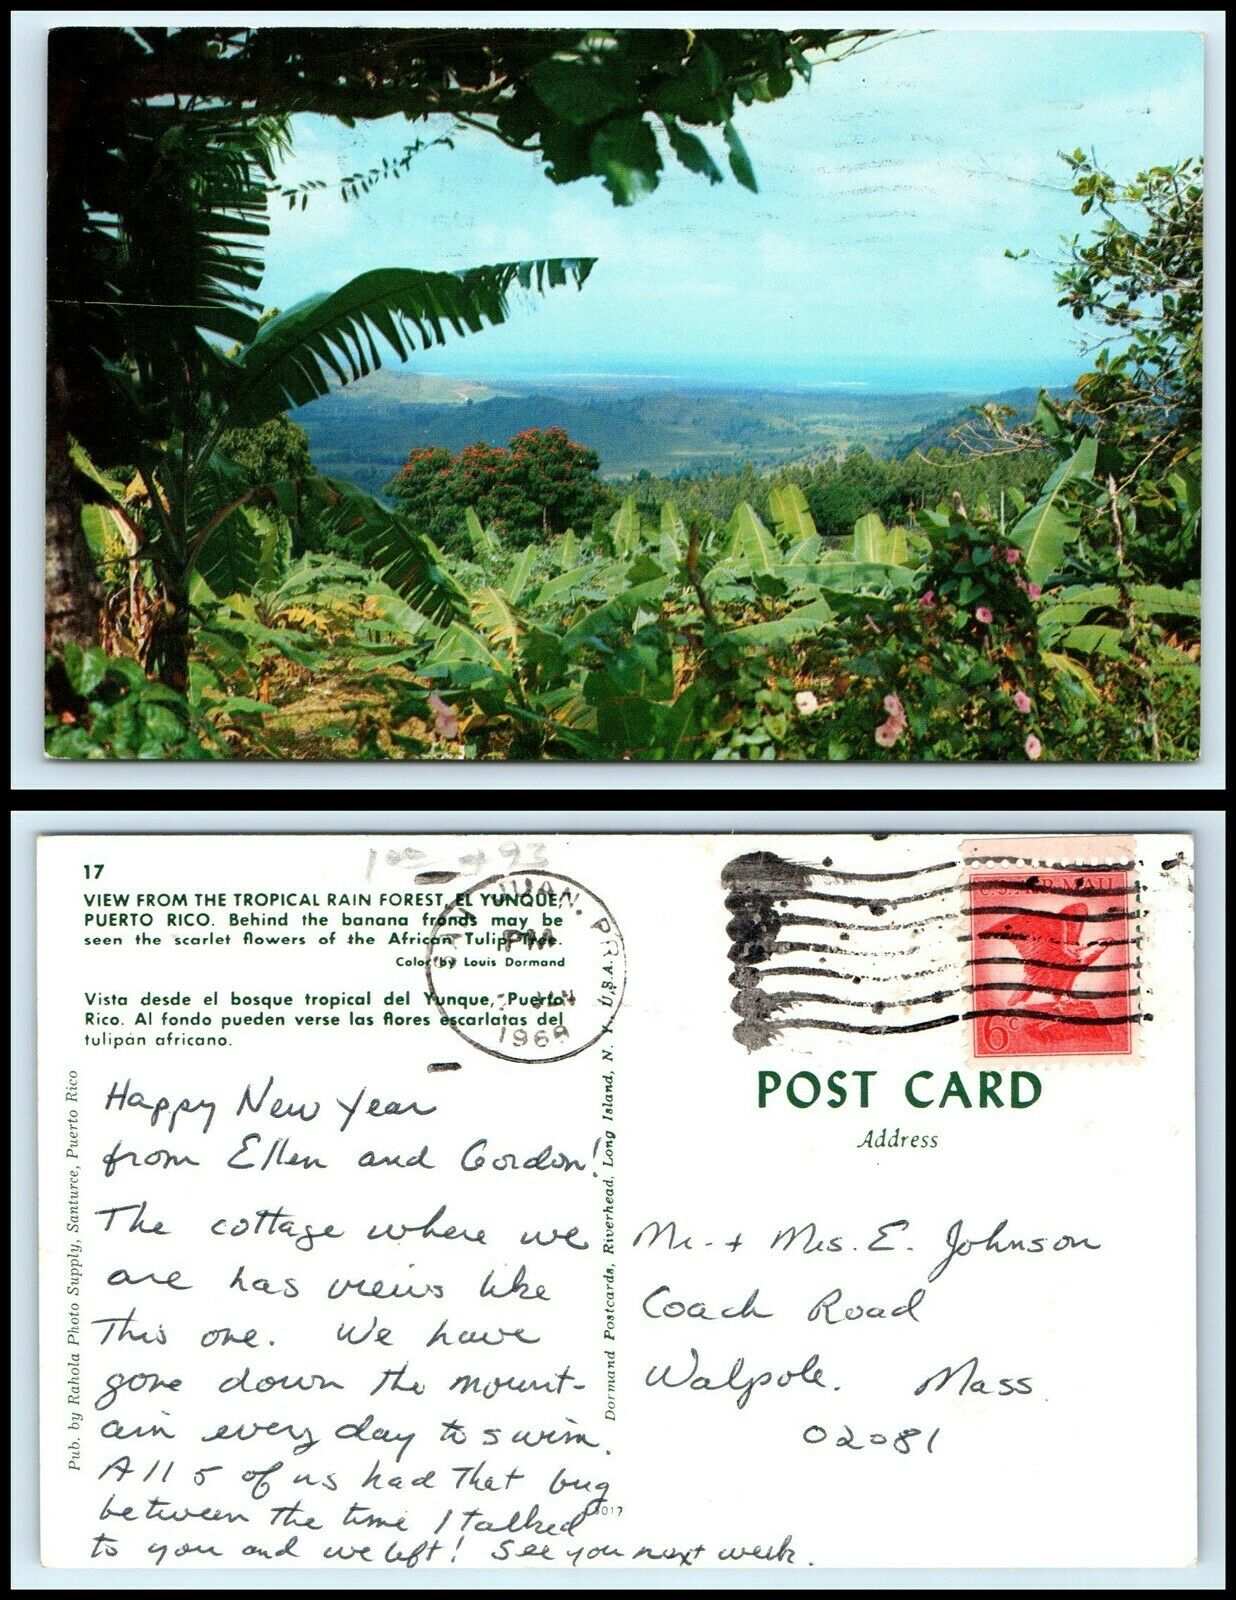 17
VIEW FROM THE TROPICAL RAIN FOREST, EL YUNQUE,
PUERTO RICO. Behind the banana fronds may be
seen the scarlet flowers of the African Tulip Tree.
Color by Louis Dormand
Vista desde el bosque tropical del Yunque, Puerto
Rico. Al fondo pueden verse las flores escarlatas del
tulipán africano.
JUAN, P.R.
PM
JAN
Pub. by Rahola Photo Supply, Santurce, Puerto Rico
Happy New Year
from Ellen and Gordon!
The cottage where we
are has views like
this one. We have
gone down the mount-
ain every day to swim.
All 5 of us had that bug
between the time I talked
to you and we left! See you next week.
Dormand Postcards, Riverhead, Long Island, N. Y., U.S.A.
6c
POST CARD
Address
Mr. + Mrs. E. Johnson
Coach Road
Walpole. Mass.
02081